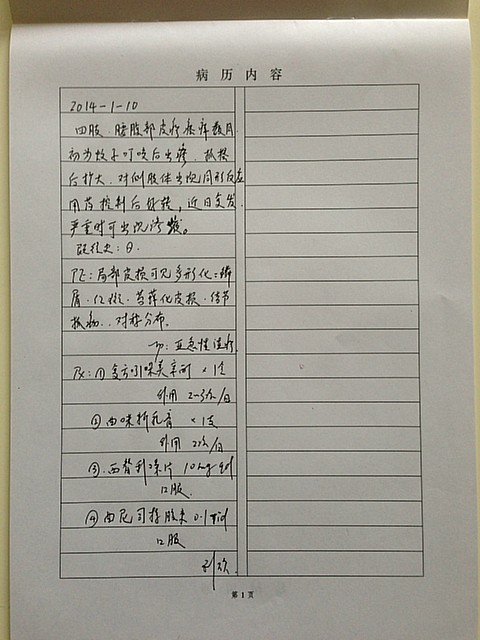 病历内容
2014-1-10
四肢、腰腹部皮疹瘙痒数月
初为蚊子叮咬后出疹、抓挠
后扩大、对侧肢体出现同形反应
用药控制后好转，近日复发.
严重时可出现渗
既往史：
PE：局部皮损可见多形化：鳞
屑、红斑、苔藓化皮损、结节
抓痕、对称分布.
亚急性湿疹
Rx：① 复方 x 1支
外用 2-3次/日
② 乳膏 x 1支
外用 2次/日
③ 西替利 片 10mg qd
口服
④ 胶 0.1 Tid
口服
第1页